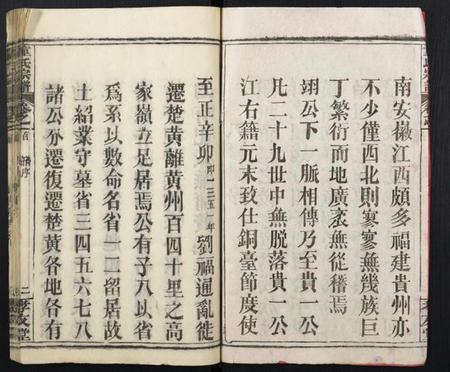 南安徽江西頗多福建貴州亦
不少僅西北則寥寥無幾族巨
丁繁衍而地廣袤無從稽焉
翊公下一脈相傳乃至貴一公
凡二十九世中無脫落貴一公
江右籍元末致仕銅臺節度使
至正辛卯即一三五 年劉福通亂徙
遷楚黃離黃州百四十里之高
家嶺立足居焉公有子八以省
為系以數命名省一二留居故
土紹業守墓省三四五六七八
諸公分遷復遷楚黃各地各有
氏宗譜